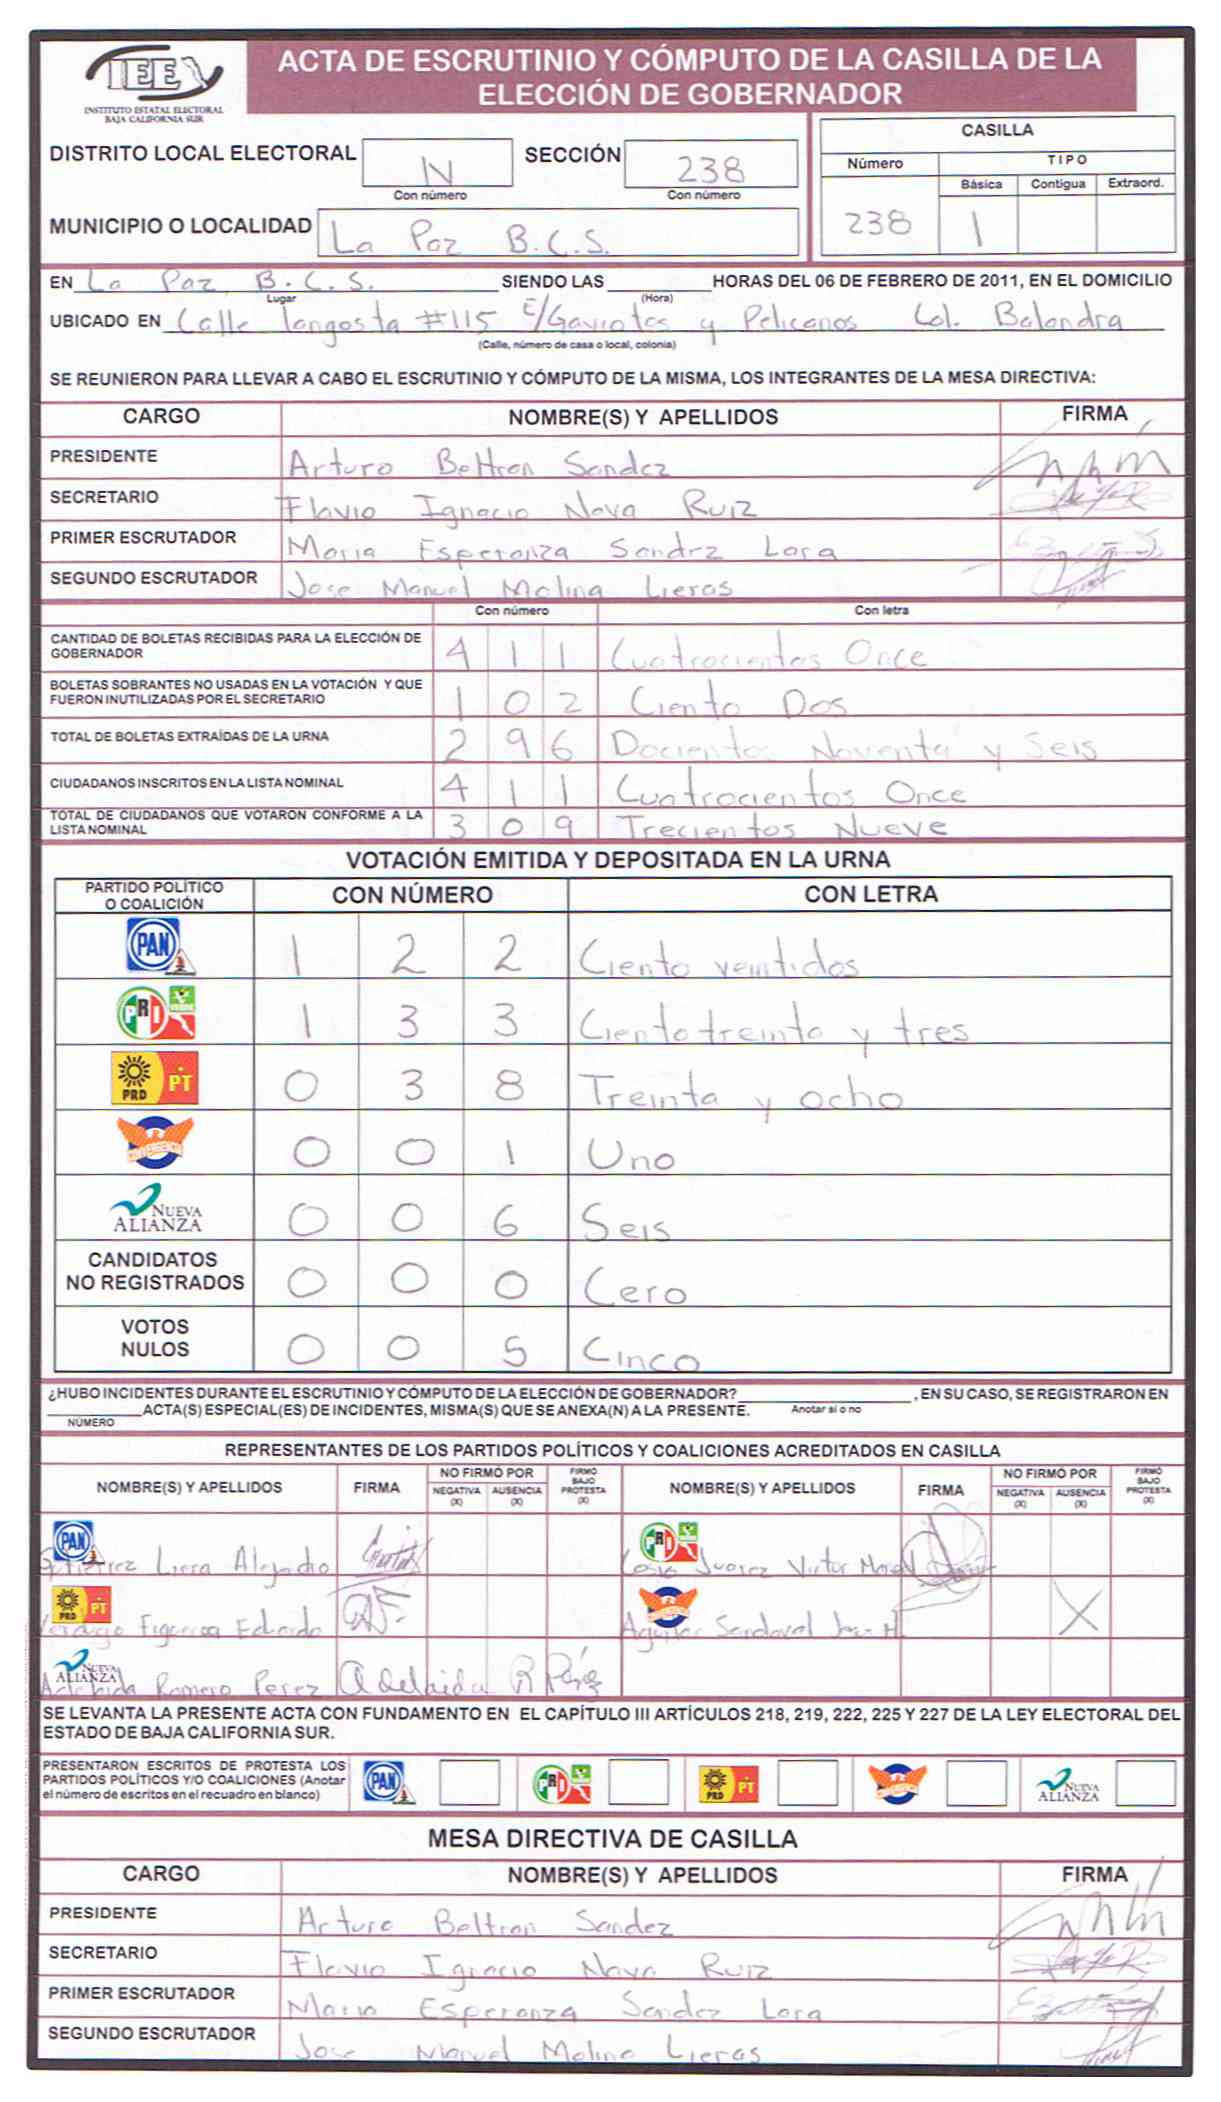 IEE
INSTITUTO ESTATAL ELECTORAL
BAJA CALIFORNIA SUR
ACTA DE ESCRUTINIO Y CÓMPUTO DE LA CASILLA DE LA
ELECCIÓN DE GOBERNADOR
DISTRITO LOCAL ELECTORAL IV SECCIÓN 238
Con número Con número
MUNICIPIO O LOCALIDAD La Paz B.C.S.
CASILLA
Número TIPO
Básica Contigua Extraord.
238 1
EN La Paz, B.C.S. SIENDO LAS HORAS DEL 06 DE FEBRERO DE 2011, EN EL DOMICILIO
Lugar (Hora)
UBICADO EN Calle langosta #115 E/Gaviotas y Pelicanos Col. Balandra
(Calle, número de casa o local, colonia)
SE REUNIERON PARA LLEVAR A CABO EL ESCRUTINIO Y CÓMPUTO DE LA MISMA, LOS INTEGRANTES DE LA MESA DIRECTIVA:
CARGO NOMBRE(S) Y APELLIDOS FIRMA
PRESIDENTE Arturo Beltran Sandez
SECRETARIO Flavio Ignacio Nava Ruiz
PRIMER ESCRUTADOR Maria Esperanza Sandez Lara
SEGUNDO ESCRUTADOR Jose Manuel Molina Lieras
Con número Con letra
CANTIDAD DE BOLETAS RECIBIDAS PARA LA ELECCIÓN DE
GOBERNADOR 4 1 1 Cuatrocientos Once
BOLETAS SOBRANTES NO USADAS EN LA VOTACIÓN Y QUE
FUERON INUTILIZADAS POR EL SECRETARIO 1 0 2 Ciento Dos
TOTAL DE BOLETAS EXTRAÍDAS DE LA URNA 2 9 6 Docientos Noventa y Seis
CIUDADANOS INSCRITOS EN LA LISTA NOMINAL 4 1 1 Cuatrocientos Once
TOTAL DE CIUDADANOS QUE VOTARON CONFORME A LA
LISTA NOMINAL 3 0 9 Trecientos Nueve
VOTACIÓN EMITIDA Y DEPOSITADA EN LA URNA
PARTIDO POLÍTICO
O COALICIÓN CON NÚMERO CON LETRA
PAN 1 2 2 Ciento veintidos
PRI VERDE 1 3 3 Ciento treinta y tres
PRD PT 0 3 8 Treinta y ocho
CONVERGENCIA 0 0 1 Uno
NUEVA
ALIANZA 0 0 6 Seis
CANDIDATOS
NO REGISTRADOS 0 0 0 Cero
VOTOS
NULOS 0 0 5 Cinco
¿HUBO INCIDENTES DURANTE EL ESCRUTINIO Y CÓMPUTO DE LA ELECCIÓN DE GOBERNADOR? , EN SU CASO, SE REGISTRARON EN
ACTA(S) ESPECIAL(ES) DE INCIDENTES, MISMA(S) QUE SE ANEXA(N) A LA PRESENTE. Anotar sí o no
NÚMERO
REPRESENTANTES DE LOS PARTIDOS POLÍTICOS Y COALICIONES ACREDITADOS EN CASILLA
NOMBRE(S) Y APELLIDOS FIRMA NO FIRMÓ POR NEGATIVA (X) AUSENCIA (X) FIRMÓ BAJO PROTESTA (X) NOMBRE(S) Y APELLIDOS FIRMA NO FIRMÓ POR NEGATIVA (X) AUSENCIA (X) FIRMÓ BAJO PROTESTA (X)
PAN PRI VERDE
Gutierrez Liera Alejandro Juarez Victor
PRD PT CONVERGENCIA
Verdugo Figueroa Eduardo Aguilar Sandoval Jose H. X
NUEVA
ALIANZA
Adelaida Romero Perez Adelaida R Pérez
SE LEVANTA LA PRESENTE ACTA CON FUNDAMENTO EN EL CAPÍTULO III ARTÍCULOS 218, 219, 222, 225 Y 227 DE LA LEY ELECTORAL DEL
ESTADO DE BAJA CALIFORNIA SUR.
PRESENTARON ESCRITOS DE PROTESTA LOS
PARTIDOS POLÍTICOS Y/O COALICIONES (Anotar
el número de escritos en el recuadro en blanco)
PAN PRI VERDE PRD PT CONVERGENCIA NUEVA ALIANZA
MESA DIRECTIVA DE CASILLA
CARGO NOMBRE(S) Y APELLIDOS FIRMA
PRESIDENTE Arturo Beltran Sandez
SECRETARIO Flavio Ignacio Nava Ruiz
PRIMER ESCRUTADOR Maria Esperanza Sandez Lara
SEGUNDO ESCRUTADOR Jose Manuel Molina Lieras